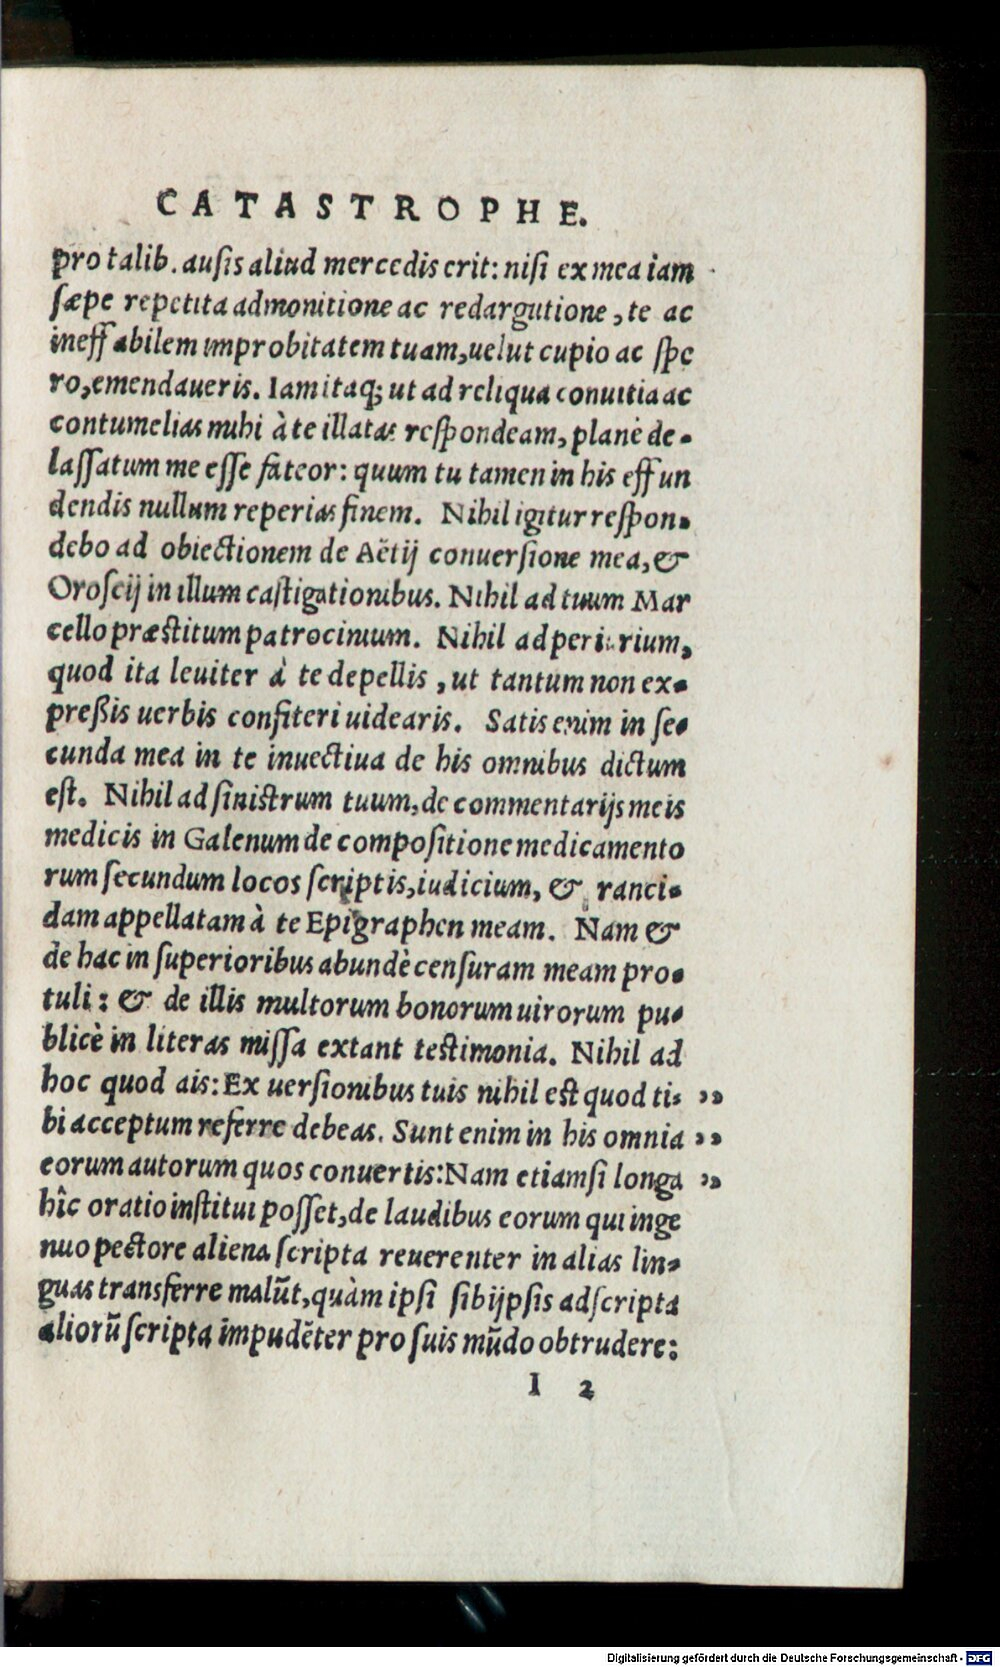 CATASTROPHE.
pro talib. ausis aliud mercedis erit: nisi ex mea iam
sæpe repetita admonitione ac redargutione, te ac
ineffabilem improbitatem tuam, uelut cupio ac spe
ro, emendaueris. Iam itaq; ut ad reliqua conuitia ac
contumelias mihi à te illatas respondeam, planè de-
lassatum me esse fateor: quum tu tamen in his effun
dendis nullum reperias finem. Nihil igitur respon-
debo ad obiectionem de Aëtij conuersione mea, &
Oroscij in illum castigationibus. Nihil ad tuum Mar
cello præstitum patrocinium. Nihil ad periurium,
quod ita leuiter à te depellis, ut tantum non ex-
preßis uerbis confiteri uidearis. Satis enim in se-
cunda mea in te inuectiua de his omnibus dictum
est. Nihil ad sinistrum tuum, de commentarijs meis
medicis in Galenum de compositione medicamento
rum secundum locos scriptis, iudicium, & ranci-
dam appellatam à te Epigraphen meam. Nam &
de hac in superioribus abundè censuram meam pro-
tuli: & de illis multorum bonorum uirorum pu-
blicè in literas missa extant testimonia. Nihil ad
hoc quod ais: Ex uersionibus tuis nihil est quod ti- ,,
bi acceptum referre debeas. Sunt enim in his omnia ,,
eorum autorum quos conuertis: Nam etiamsi longa ,,
hîc oratio institui posset, de laudibus eorum qui inge
nuo pectore aliena scripta reuerenter in alias lin-
guas transferre malūt, quàm ipsi sibijpsis adscripta
aliorū scripta impudēter pro suis mūdo obtrudere:
I 2
Digitalisierung gefördert durch die Deutsche Forschungsgemeinschaft - DFG